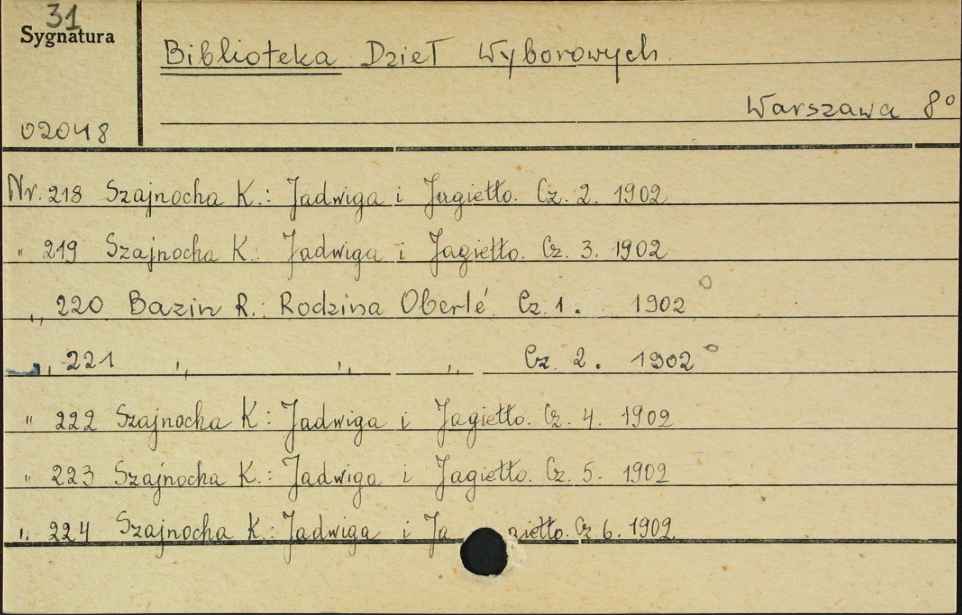 31
Sygnatura
Biblioteka Dzieł Wyborowych.
Warszawa 8°
02048
Nr. 218 Szajnocha K.: Jadwiga i Jagiełło. Cz. 2. 1902
" 219 Szajnocha K.: Jadwiga i Jagiełło. Cz. 3. 1902
" 220 Bazin R.: Rodzina Oberlé Cz 1. 1902 °
" 221 " " " Cz 2. 1902 °
" 222 Szajnocha K: Jadwiga i Jagiełło. Cz. 4. 1902
" 223 Szajnocha K.: Jadwiga i Jagiełło. Cz. 5. 1902
" 224 Szajnocha K: Jadwiga i Ja giełło. Cz 6. 1902.